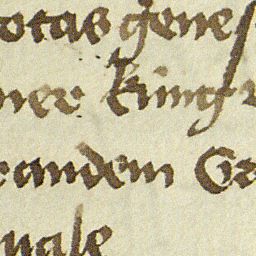 otas gene
ner king
eandem Ge
uale